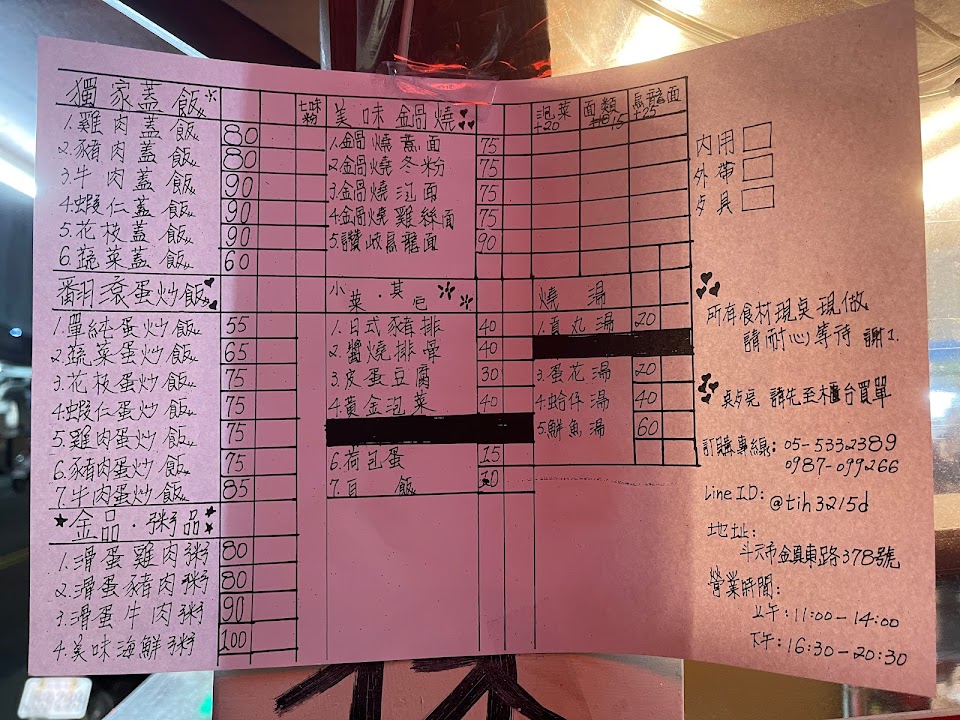 獨家蓋飯
七味粉
1.雞肉蓋飯 80
2.豬肉蓋飯 80
3.牛肉蓋飯 90
4.蝦仁蓋飯 90
5.花枝蓋飯 90
6.蔬菜蓋飯 60
翻滾蛋炒飯
1.單純蛋炒飯 55
2.蔬菜蛋炒飯 65
3.花枝蛋炒飯 75
4.蝦仁蛋炒飯 75
5.雞肉蛋炒飯 75
6.豬肉蛋炒飯 75
7.牛肉蛋炒飯 85
金品·粥品
1.滑蛋雞肉粥 80
2.滑蛋豬肉粥 80
3.滑蛋牛肉粥 90
4.美味海鮮粥 100
美味鍋燒
泡菜 +20
面類 +15
烏龍面 +25
1.鍋燒意面 75
2.鍋燒冬粉 75
3.鍋燒泡面 75
4.鍋燒雞絲面 75
5.讚岐烏龍面 90
小菜·其他
1.日式豬排 40
2.醬燒排骨 40
3.皮蛋豆腐 30
4.黃金泡菜 40
6.荷包蛋 15
7.白飯 10
燒湯
1.貢丸湯 20
3.蛋花湯 20
4.蛤仔湯 40
5.鮮魚湯 60
內用
外帶
歺具
所有食材現桌現做
請耐心等待 謝1.
桌歺完 請先至櫃台買單
訂購專線: 05-5332389
0987-099266
Line ID: @tih3215d
地址:
斗六市金真東路378號
營業時間:
上午:11:00-14:00
下午:16:30-20:30